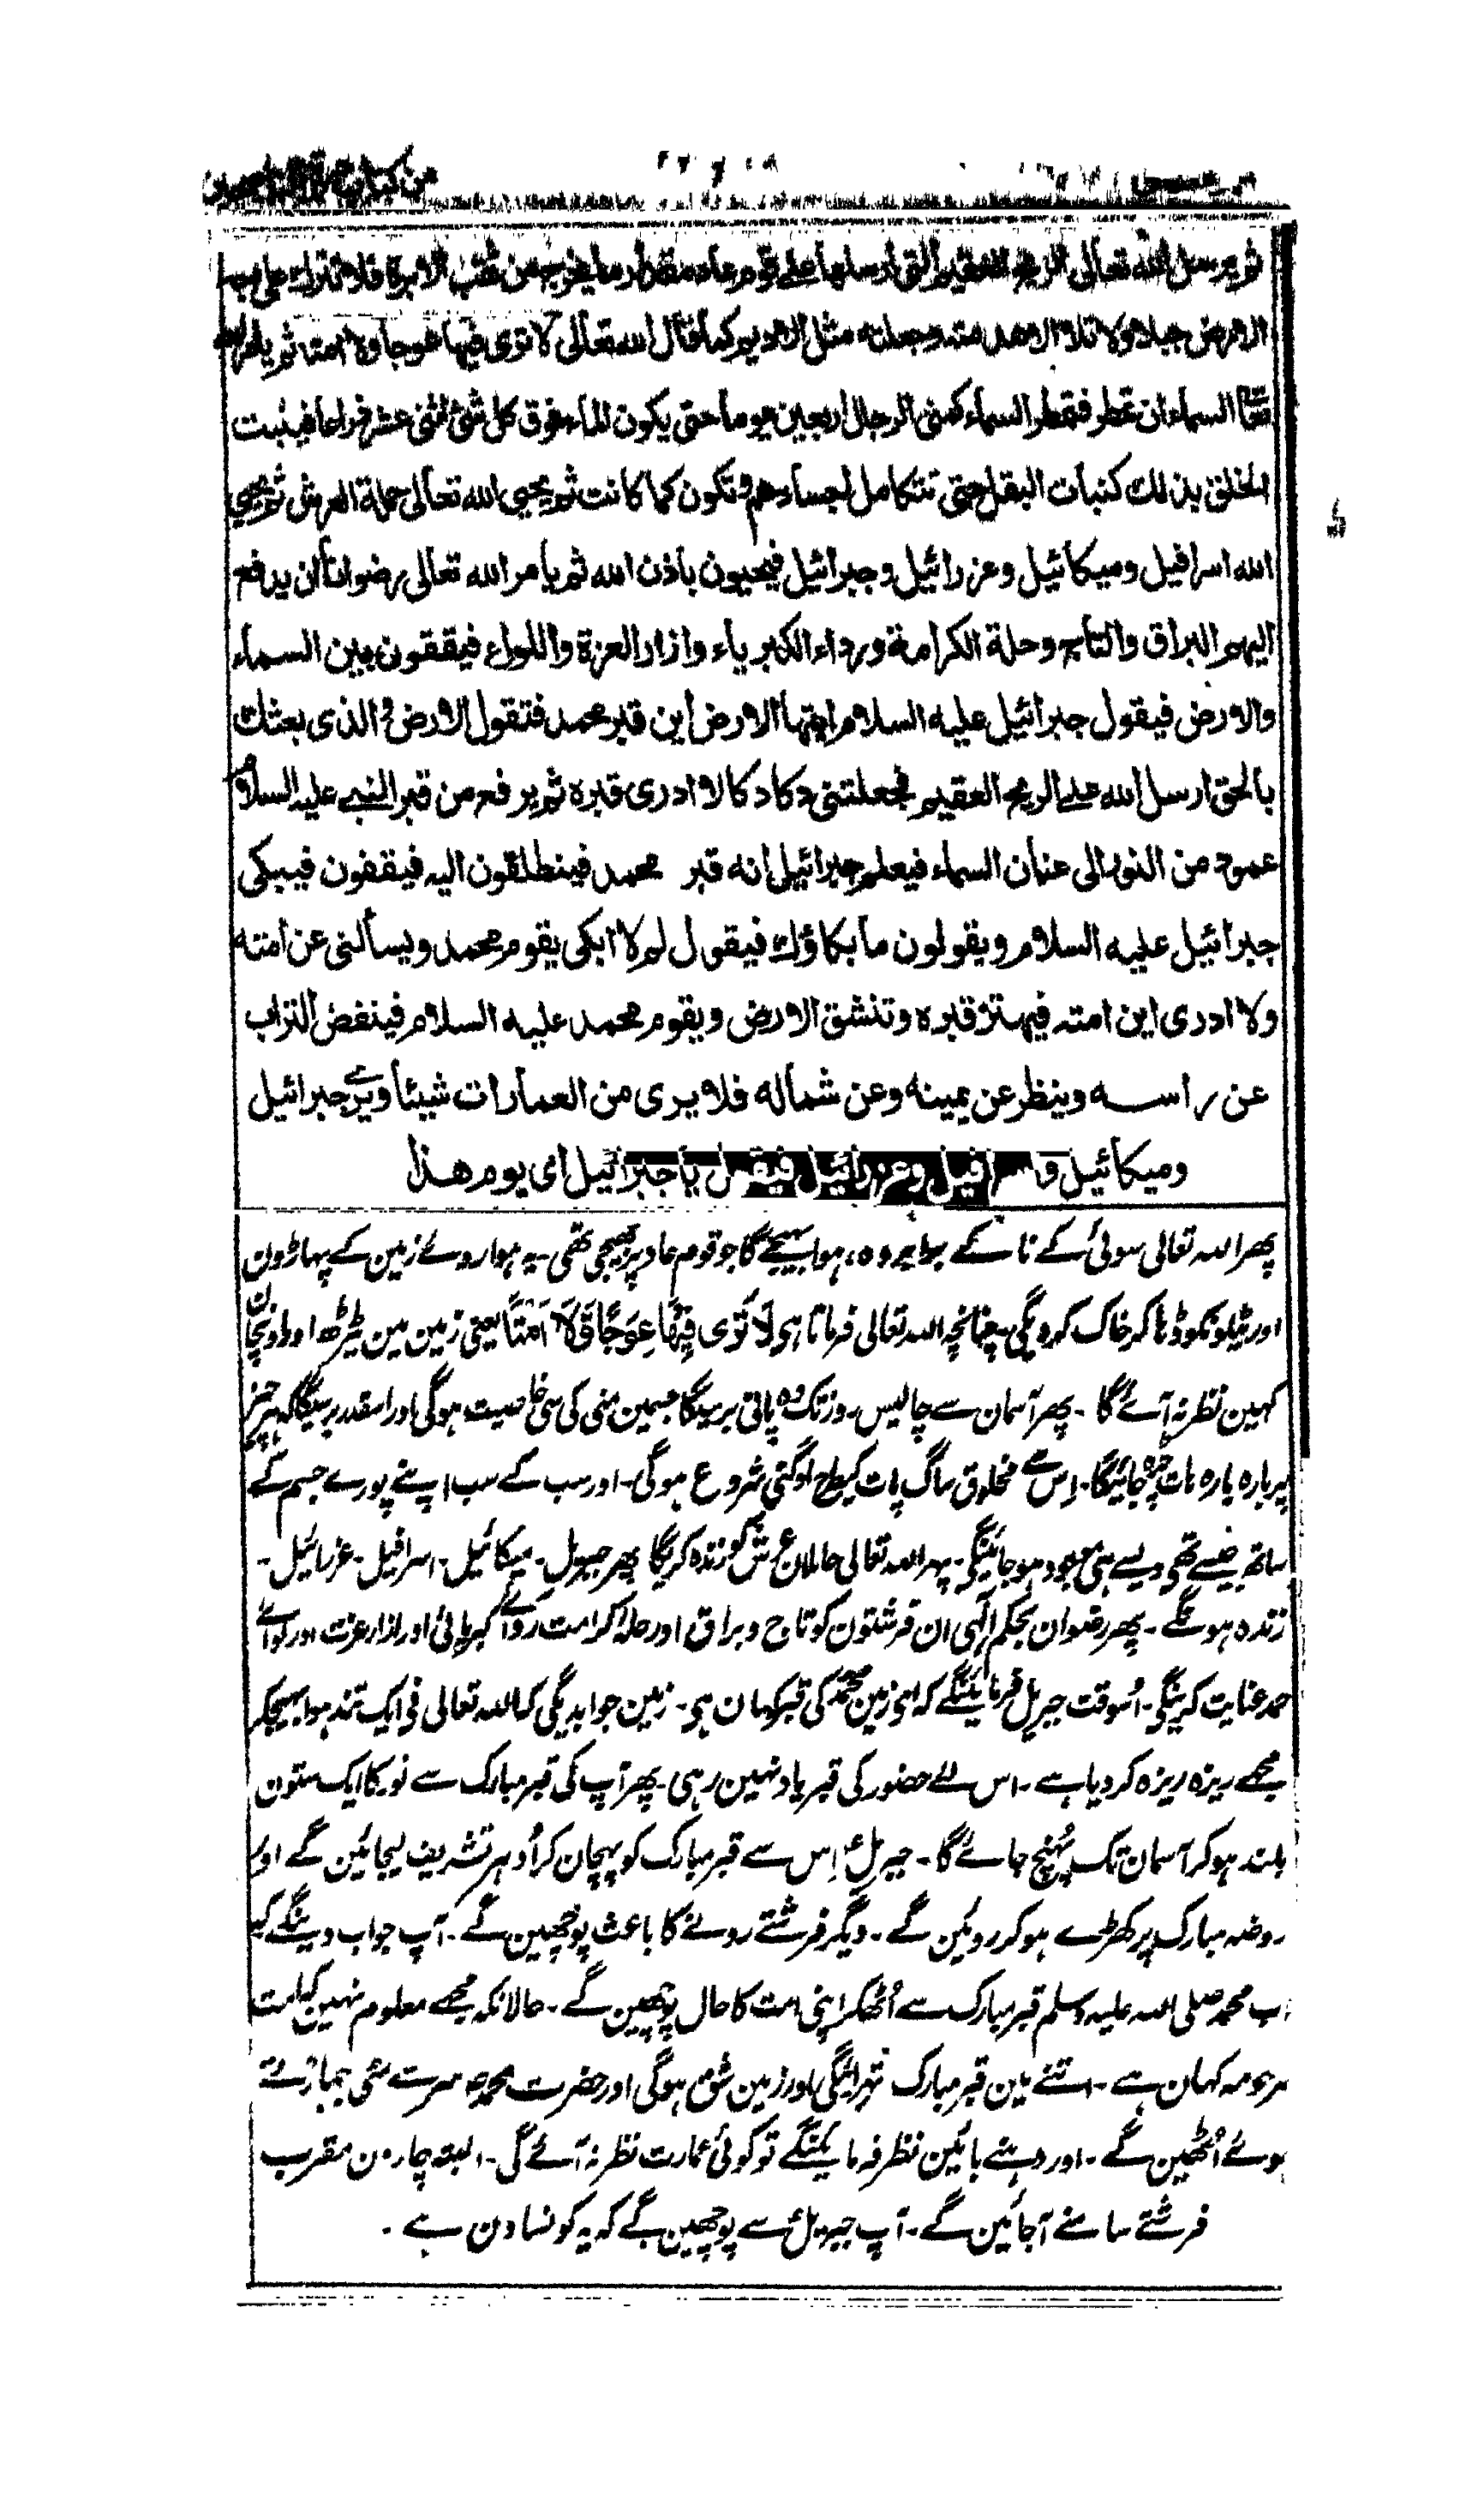 ثم يرسل الله تعالى الريح العقيم التى ارسلها على قوم عاد مقدار ما يخرج من ثقب الابرة فلا تترك على
الارض جبلا ولا تلا الا هدمته وجعلته مثل الاديم كما قال الله تعالى لا ترى فيها عوجا ولا امتا ثم يامر الله
تعا السماء ان تمطر فتمطر السماء كمنى الرجال اربعين يوما حتى يكون الماء فوق كل شئ اثنى عشر ذراعا فينبت
الخلق بذلك كنبات البقل حتى تتكامل اجسادهم وتكون كما كانت ثم يحيى الله تعالى حملة العرش ثم يحيى
الله اسرافيل وميكائيل وعزرائيل وجبرائيل فيحيون باذن الله ثم يأمر الله تعالى رضوانا ان يدفع
اليهم البراق والتاج وحلة الكرامة ورداء الكبرياء وازار العزة واللواء فيقفون بين السماء
والارض فيقول جبرائيل عليه السلام ايتها الارض اين قبر محمد فتقول الارض والذى بعثك
بالحق ارسل الله على الريح العقيم فجعلتنى دكا دكا لا ادرى قبره ثم يرفع من قبر النبى عليه السلام
عمود من النور الى عنان السماء فيعلم جبرائيل انه قبر محمد فينطلقون اليه فيقفون فيبكى
جبرائيل عليه السلام ويقولون ما بكاؤك فيقول لم لا ابكى يقوم محمد ويسألنى عن امته
ولا ادرى اين امته فيهتز قبره وتنشق الارض ويقوم محمد عليه السلام فينفض التراب
عن راسه وينظر عن يمينه وعن شماله فلا يرى من العمارات شيئا ويرى جبرائيل
وميكائيل واسرافيل وعزرائيل فيقول يا جبرائيل اى يوم هذا
پھر اللہ تعالی سوئی کے ناکے برابر وہ ہوا بھیجے گا جو قوم عاد پر بھیجی تھی۔ یہ ہوا روئے زمین کے پہاڑون
اور ٹیلونکو ڈہا کر خاک کردیگی۔ چنانچہ اللہ تعالی فرماتا ہی لَا تَرٰى فِيْهَا عِوَجًا وَّلَا اَمْتًا یعنی زمین مین ٹیڑھ اور اونچان
کہین نظر نہ آئے گا۔ پھر آسمان سے چالیس روز تک وہ پانی برسیگا جسمین منی کی سی خاصیت ہوگی اور اسقدر برسیگا کہ ہر چیز
پر بارہ بارہ ہات چڑہ جائیگا۔ اِس سے مخلوق ساگ پات کیطرح اوگنی شروع ہوگی۔ اور سب کے سب اپنے پورے جسم کے
ساتھ جیسے تھی ویسے ہی موجود ہو جائینگی۔ پہر اللہ تعالی حاملان عرش کو زندہ کریگا پھر جبریل۔ میکائیل۔ اسرافیل۔ عزرائیل۔
زندہ ہونگے۔ پھر رضوان بحکم الٰہی ان فرشتون کو تاج و براق اور حلۂ کرامت ردائے کبریائی اور ازار عزت اور لوائے
حمد عنایت کرینگے۔ اُسوقت جبریل فرمائینگے کہ ای زمین محمدؐ کی قبر کہان ہی۔ زمین جواب دیگی کہ اللہ تعالی نی ایک تند ہوا بھیجکر
مجھے ریزہ ریزہ کردیا ہے۔ اس لئے حضور کی قبر یاد نہین رہی۔ پھر آپ کی قبر مبارک سے نور کا ایک ستون
بلند ہو کر آسمان تک پہُنچ جائے گا۔ جبریلؑ اِس سے قبر مبارک کو پہچان کر اُدہر تشریف لیجائین گے اور
روضہ مبارک پر کھڑے ہوکر روئین گے۔ دیگر فرشتے رونے کا باعث پوچھین گے۔ آپ جواب دینگے کہ
اب محمد صلی اللہ علیہ وسلم قبر مبارک سے اُٹھکر اپنی امت کا حال پوچھین گے۔ حالانکہ مجھے معلوم نہین کہ امت
مرحومہ کہان ہے۔ اتنے مین قبر مبارک تھرائیگی اور زمین شق ہوگی اور حضرت محمدؐ سر سے مٹی جہاڑتے
ہوئے اُٹھین گے۔ اور دہنے بائین نظر فرمائینگے تو کوئی عمارت نظر نہ آئے گی۔ البتہ چارون مقرب
فرشتے سامنے آجائین گے۔ آپ جبریلؑ سے پوچھین گے کہ یہ کونسا دن ہے۔